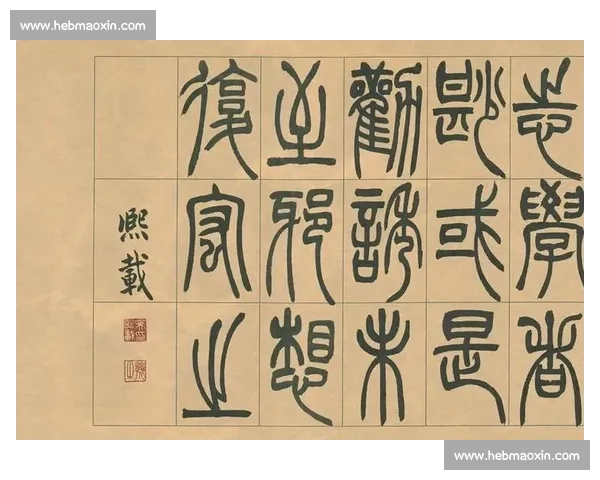 志學者
尠或是
勸誘未
至邪想
復宏之
熙載
www.hebmaoxin.com
www.hebmaoxin.com